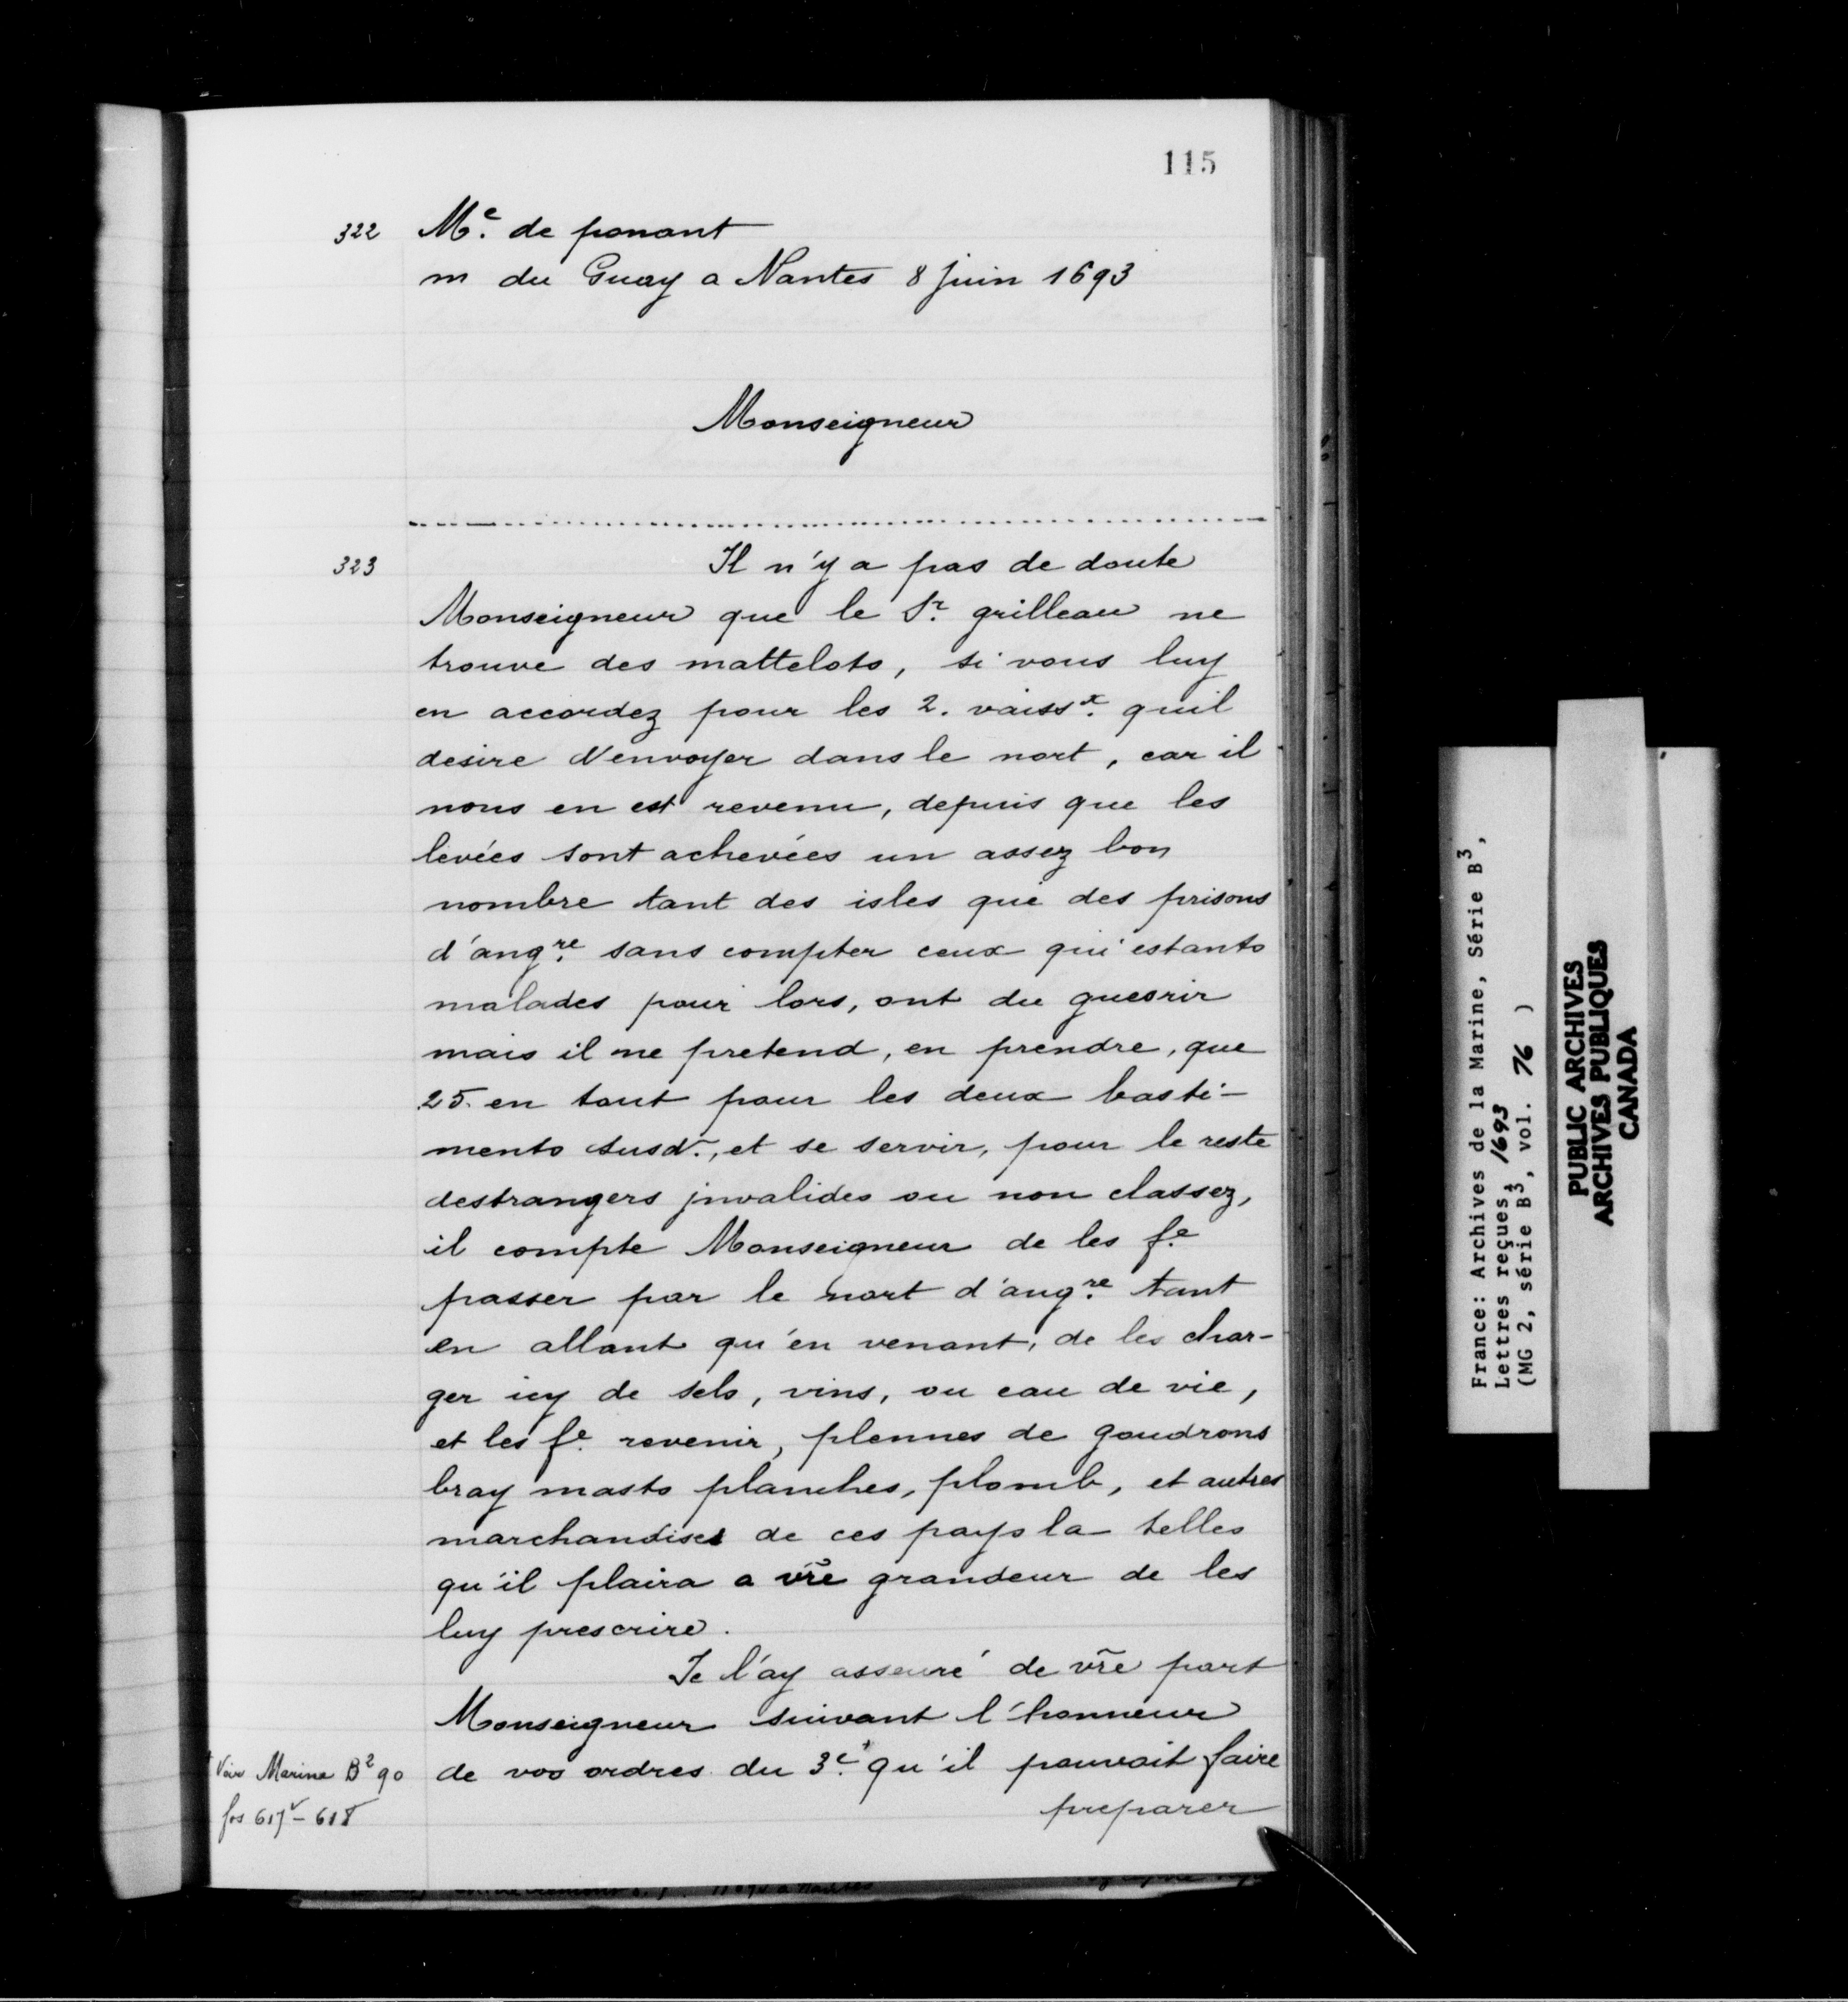 115
322 Mᵉ. de ponant
m du Guay a Nantes 8 Juin 1693
Monseigneur
323 Il n'y a pas de doute
Monseigneur que le Sʳ. grilleau ne
trouve des mattelots, si vous luy
en accordez pour les 2. vaissˣ. quil
desire d'envoyer dans le nort, car il
nous en est revenu, depuis que les
levées sont achevées un assez bon
nombre tant des isles que des prisons
d'angʳᵉ. sans compter ceux qui estants
malades pour lors, ont du guesrir
mais il ne pretend, en prendre, que
25. en tout pour les deux basti-
ments susd., et se servir, pour le reste
destrangers jnvalides ou non classez,
il compte Monseigneur de les fᵉ.
passer par le nort d'angʳᵉ. tant
en allant qu'en venant, de les char-
ger icy de sels, vins, ou eau de vie,
et les fᵉ. revenir, plennes de goudrons
bray masts planches, plomb, et autres
marchandises de ces pays la telles
qu'il plaira a vr̃e grandeur de les
luy prescrire.
Je l'ay asseuré de vr̃e part
Monseigneur suivant l'honneur
de vos ordres du 3ᵉ.⁺ qu'il pouvait faire
preparer
⁺ Voir Marine B² 90
fos 617ᵛ - 618
France: Archives de la Marine, Série B³,
Lettres reçues, 1693
(MG 2, série B³, vol. 76 )
PUBLIC ARCHIVES
ARCHIVES PUBLIQUES
CANADA